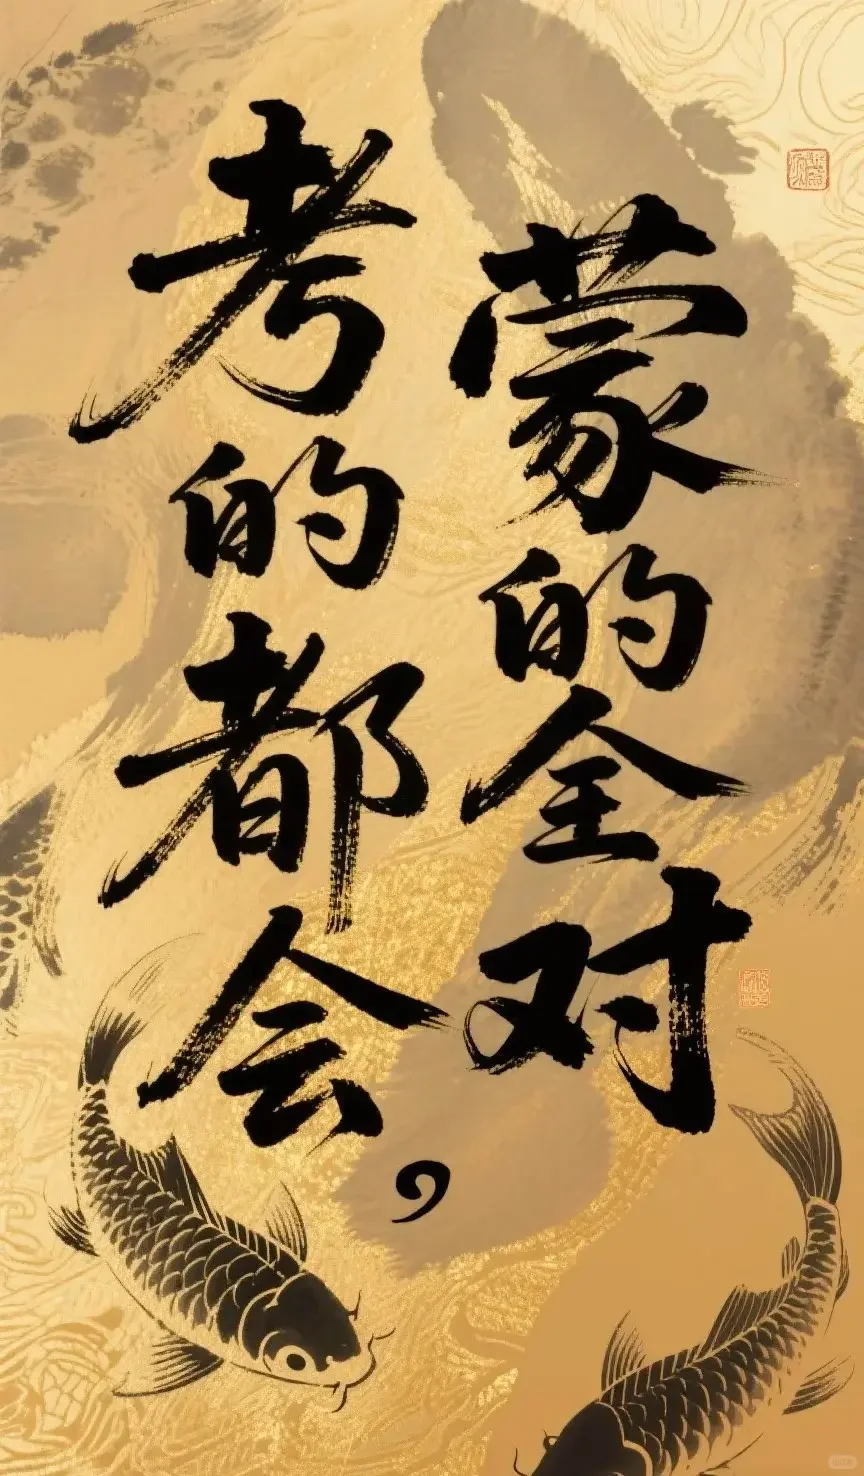 考的都会
蒙的全对
,